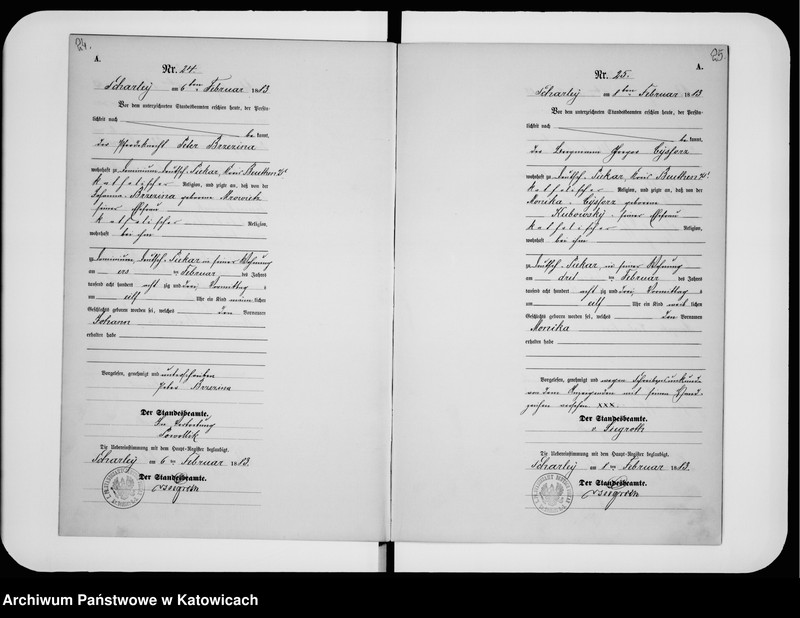 24.
A.
Nr. 24
Scharley am 6ten Februar 1883.
Vor dem unterzeichneten Standesbeamten erschien heute, der Persön-
lichkeit nach
be kannt,
der Pferdeknecht Peter Brzezina
wohnhaft zu Dominium Deutsch-Piekar, Kreis Beuthen
katholischer Religion, und zeigte an, daß von der
Johanna Brzezina geborene Mrowietz
seiner Ehefrau
katholischer Religion,
wohnhaft bei ihm
zu Dominium Deutsch-Piekar in seiner Wohnung
am Februar des Jahres
tausend acht hundert acht zig und drei Vormittag s
um elf Uhr ein Kind männ lichen
Geschlechts geboren worden sei, welches den Vornamen
Johann
erhalten habe
Vorgelesen, genehmigt und unterschrieben
Peter Brzezina
Der Standesbeamte.
In Vertretung
Die Uebereinstimmung mit dem Haupt-Register beglaubigt.
Scharley am 6ten Februar 1883.
Der Standesbeamte.
25.
A.
Nr. 25.
Scharley am ten Februar 1883
Vor dem unterzeichneten Standesbeamten erschien heute, der Persön-
lichkeit nach
be kannt,
der Bergmann
wohnhaft zu Deutsch-Piekar, Kreis Beuthen
katholischer Religion, und zeigte an, daß von der
Monika geborene
Kubowsky seiner Ehefrau
katholischer Religion,
wohnhaft bei ihm
zu Deutsch-Piekar, in seiner Wohnung
am drei ten Februar des Jahres
tausend acht hundert acht zig und drei Vormittag s
um elf Uhr ein Kind weib lichen
Geschlechts geboren worden sei, welches den Vornamen
Monika
erhalten habe
Vorgelesen, genehmigt und wegen Schreibensunkunde
von dem Anzeigenden mit seinem Hand-
zeichen versehen xxx.
Der Standesbeamte.
Die Uebereinstimmung mit dem Haupt-Register beglaubigt.
Scharley am ten Februar 1883.
Der Standesbeamte.
Archiwum Państwowe w Katowicach